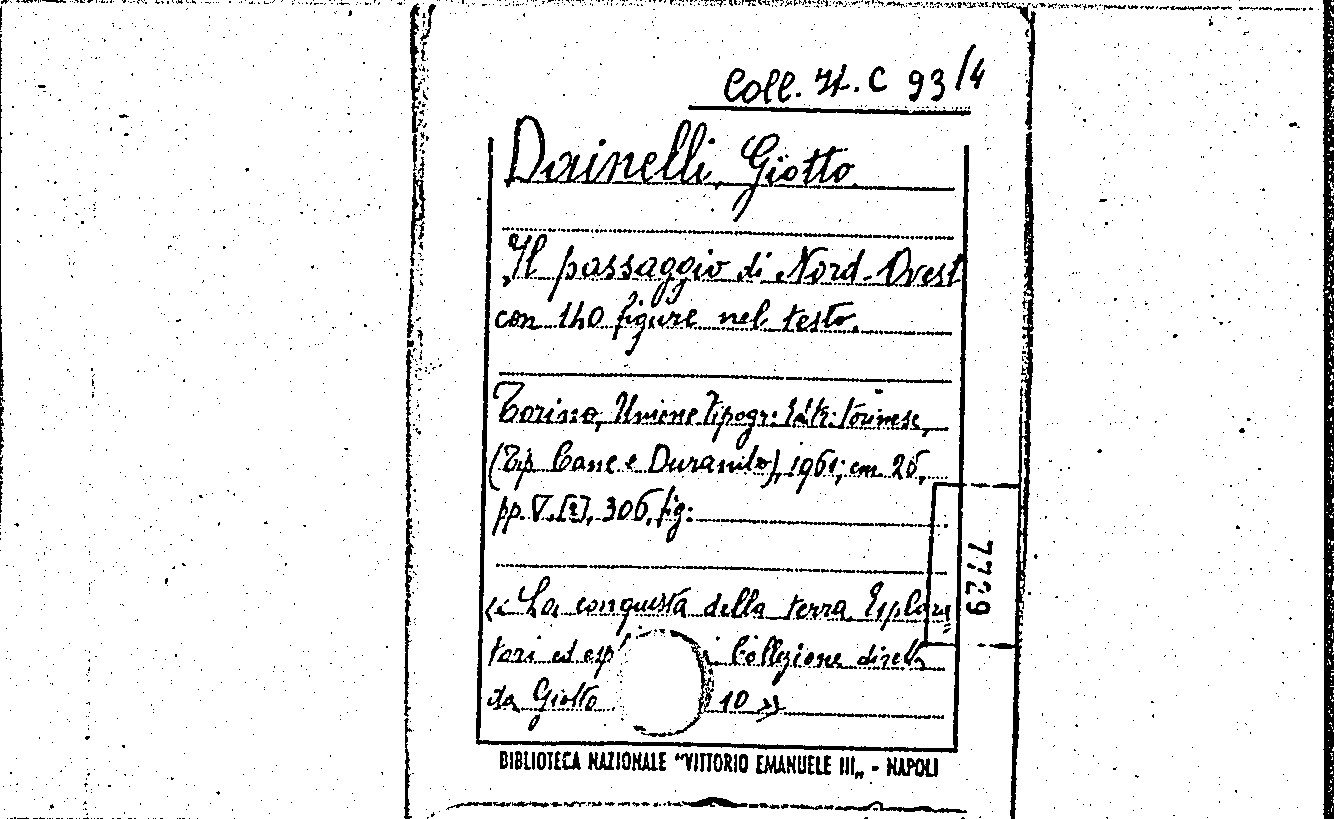 Coll. It. C 93/4
Dainelli, Giotto
Il passaggio di Nord-Ovest
con 140 figure nel testo.
Torino, Unione Tipogr: Edit: torinese,
(Tip Cane e Durando), 1961; cm 26,
pp. V.[2], 306, fig:
« La conquista della terra. Esplora
tori ed esp Collezione diretta
da Giotto 10 »
7729
BIBLIOTECA NAZIONALE "VITTORIO EMANUELE III„ - NAPOLI